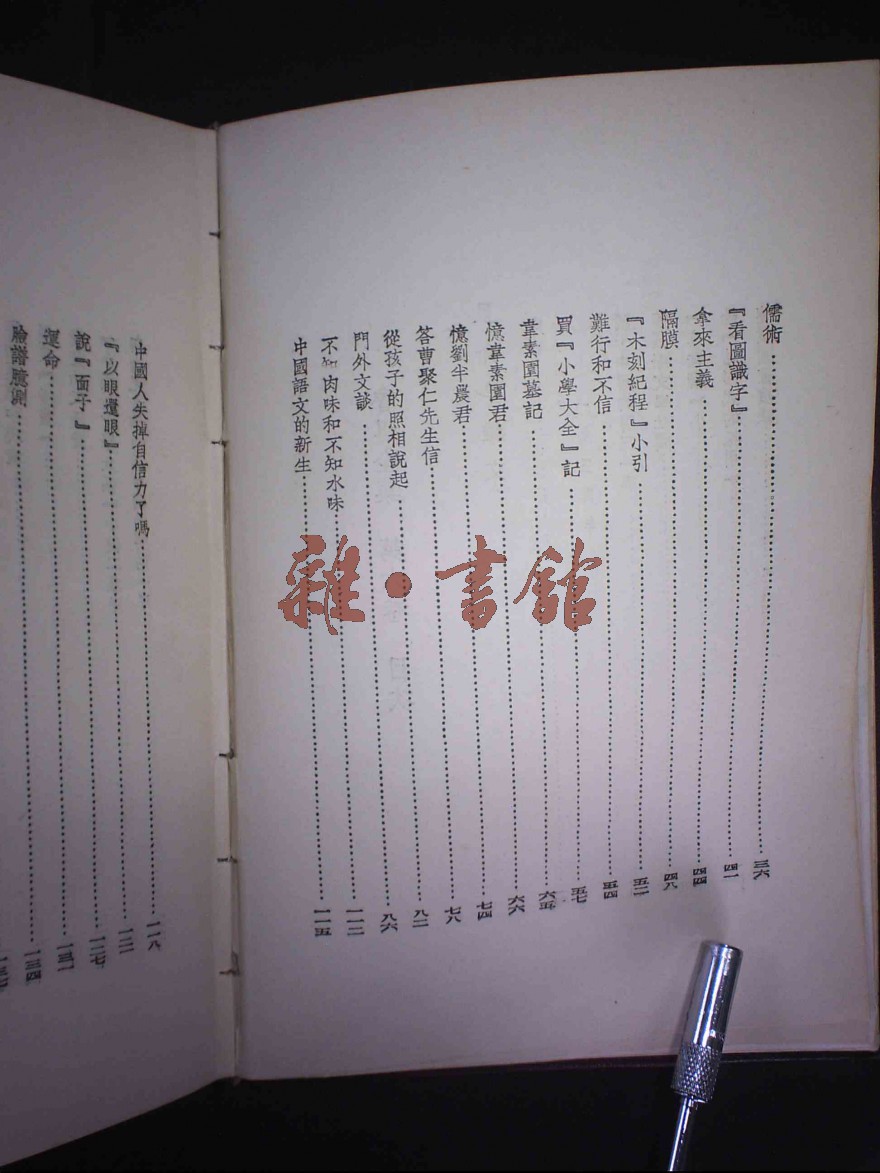 儒術…………三六
『看圖識字』…………四一
拿來主義…………四四
隔膜…………四八
『木刻紀程』小引…………五二
難行和不信…………五四
買『小學大全』記…………五七
韋素園墓記…………六五
憶韋素園君…………六六
憶劉半農君…………七四
答曹聚仁先生信…………七八
從孩子的照相說起…………八二
門外文談…………八六
不知肉味和不知水味…………一一二
中國語文的新生…………一一五
中國人失掉自信力了嗎…………一一八
『以眼還眼』…………一二二
說『面子』…………一二七
運命…………一三一
臉譜臆測…………一三四
雜·書館